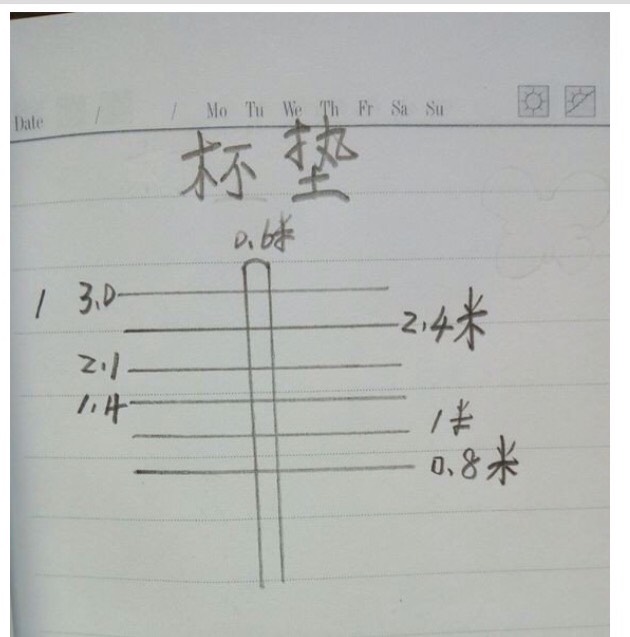 Date / / Mo Tu We Th Fr Sa Su
杯垫
0.6米
1 3.0
2.4米
2.1
1.4
1米
0.8米